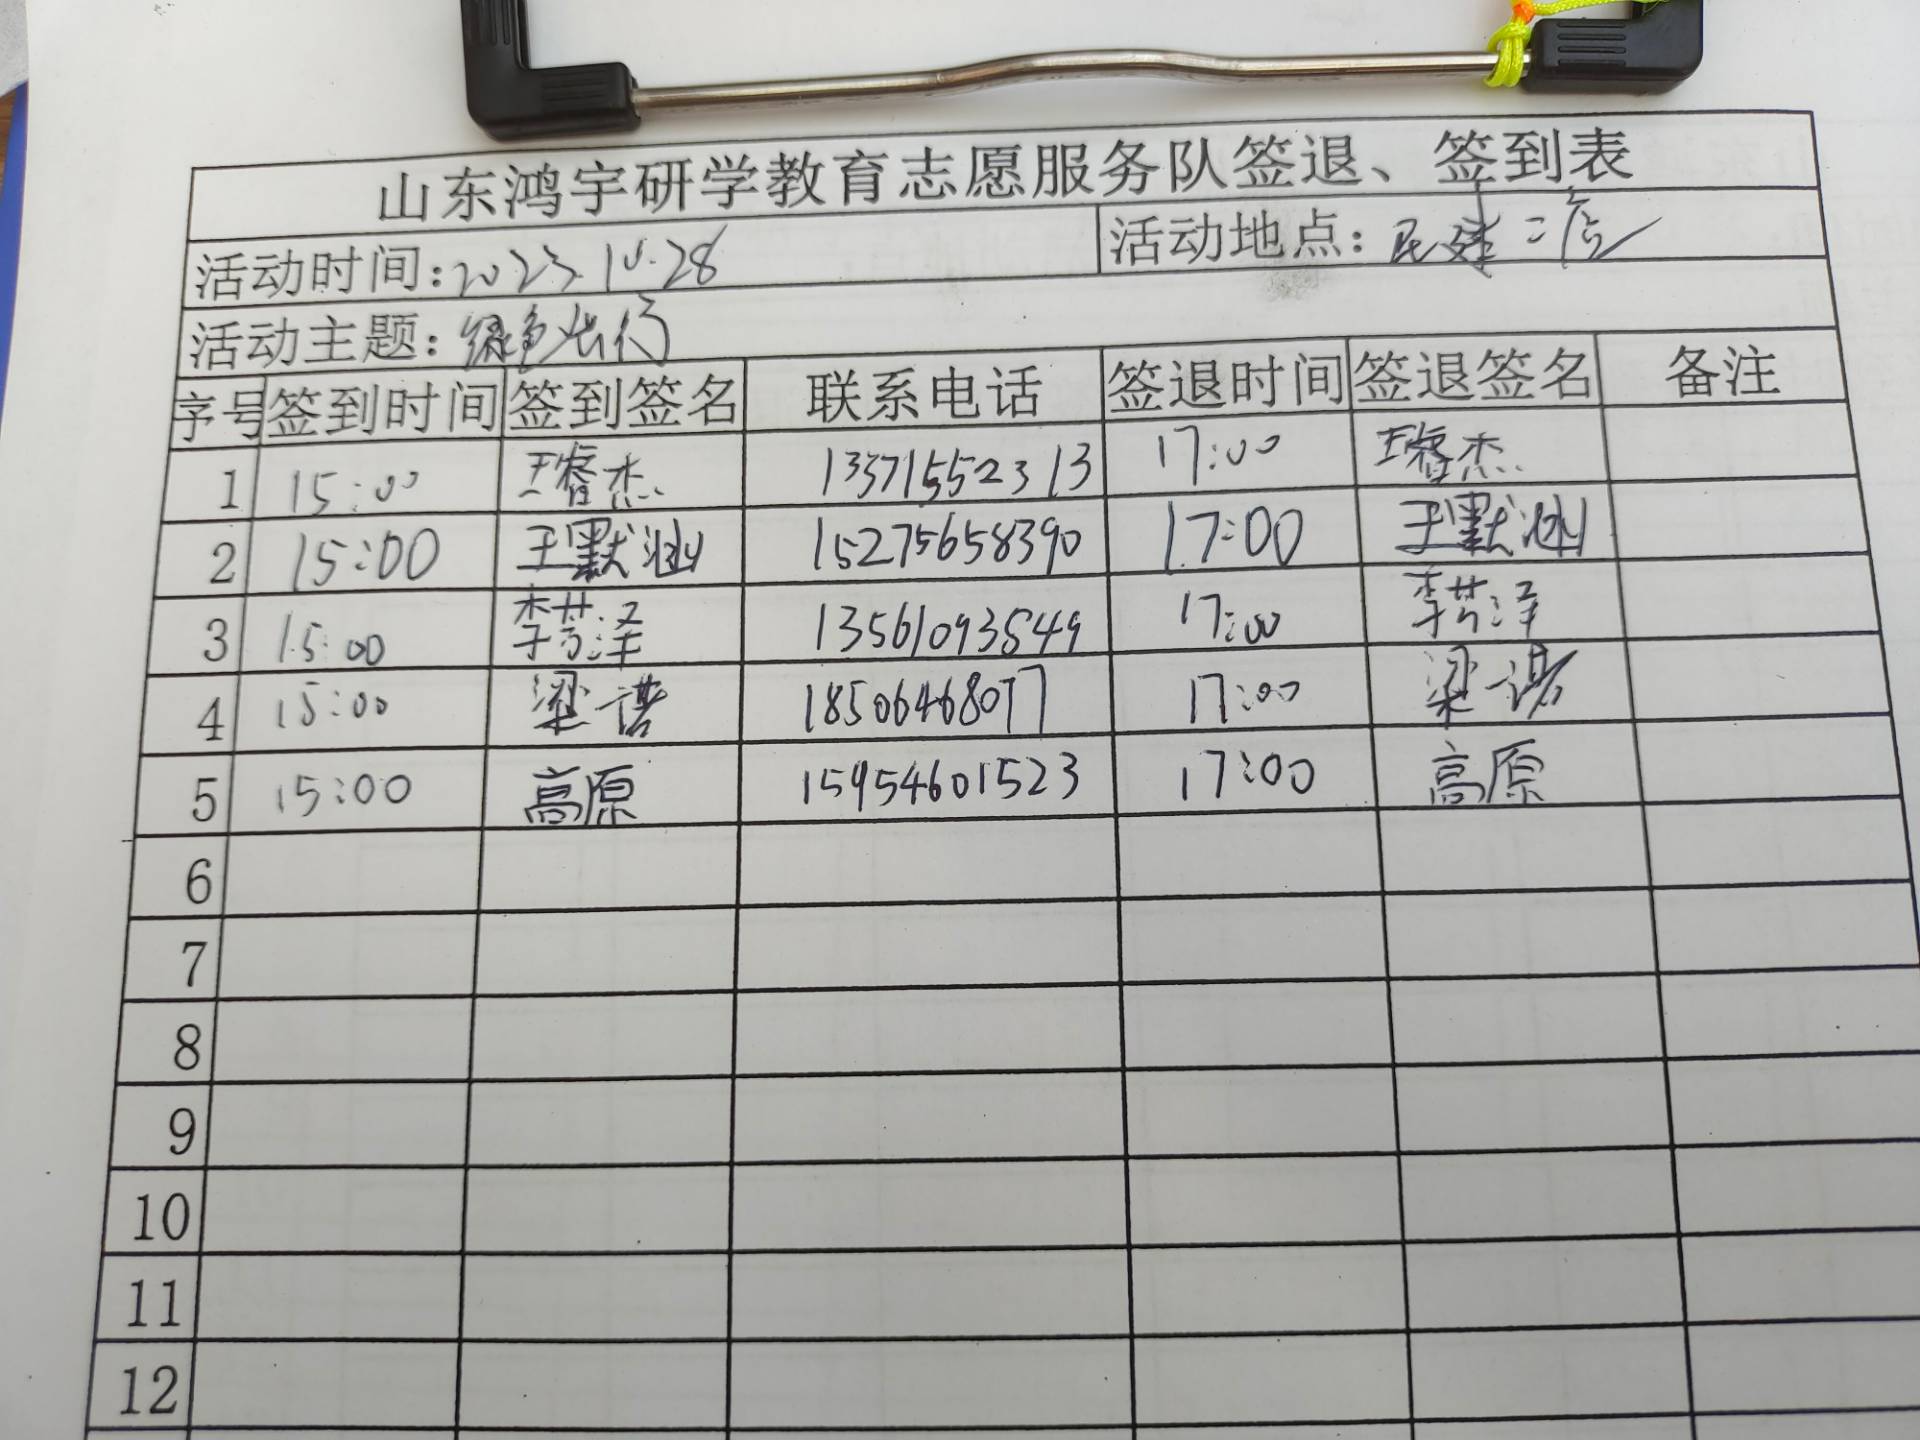 山东鸿宇研学教育志愿服务队签退、签到表
活动时间：2023.10.28 活动地点：民建二
活动主题：绿色出行
序号 签到时间 签到签名 联系电话 签退时间 签退签名 备注
1 15:00 杰 13371552313 17:00 杰
2 15:00 王默涵 15275658390 17:00 王默涵
3 15:00 李芳泽 13561093849 17:00 李芳泽
4 15:00 梁一诺 18506468077 17:00 梁一诺
5 15:00 高原 15954601523 17:00 高原
6
7
8
9
10
11
12